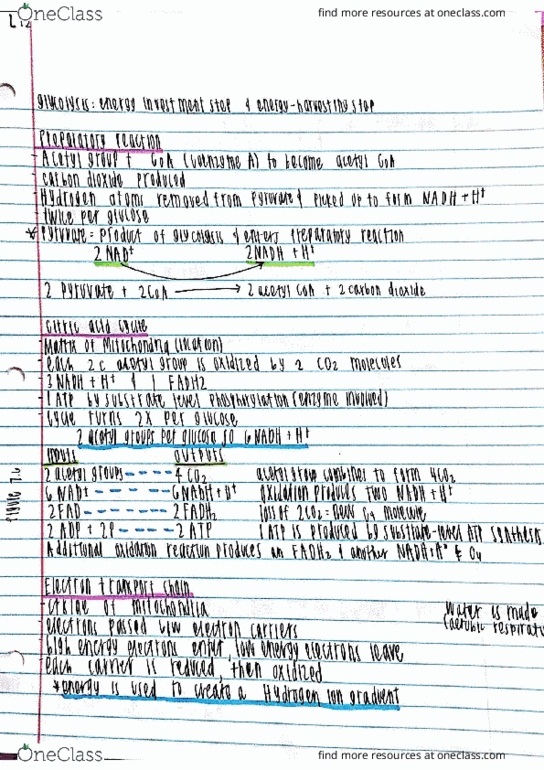 OneClass
find more resources at oneclass.com
L12
glycolysis: energy investment step & energy-harvesting step
Preparatory reaction
Acetyl group + CoA (coenzyme A) to become acetyl CoA
carbon dioxide produced
Hydrogen atoms removed from pyruvate & picked up to form NADH + H+
twice per glucose
* Pyruvate = product of glycolysis & enters preparatory reaction
2 NAD+ 2NADH + H+
2 Pyruvate + 2CoA → 2 acetyl CoA + 2 carbon dioxide
Citric acid cycle
Matrix of Mitochondria (location)
each 2c acetyl group is oxidized by 2 CO2 molecules
3 NADH + H+ & 1 FADH2
1 ATP by substrate level phosphorylation (enzyme involved)
Cycle turns 2X per glucose
2 acetyl groups per glucose so 6 NADH + H+
Inputs outputs
2 acetyl groups ---- 4 CO2 acetyl group combines to form 4CO2
6 NAD+ ---- 6NADH + H+ oxidation produces two NADH + H+
2 FAD ---- 2 FADH2 loss of 2CO2 = new C4 molecule
2 ADP + 2P ---- 2 ATP 1 ATP is produced by substrate-level ATP synthesis
Additional oxidation reaction produces an FADH2 & another NADH+H+ & C4
Figure 7.6
Electron transport chain
cristae of mitochondria
electrons passed b/w electron carriers
high energy electrons enter, low energy electrons leave
each carrier is reduced, then oxidized
*energy is used to create a Hydrogen ion gradient
Water is made
(aerobic respirat
OneClass
find more resources at oneclass.com